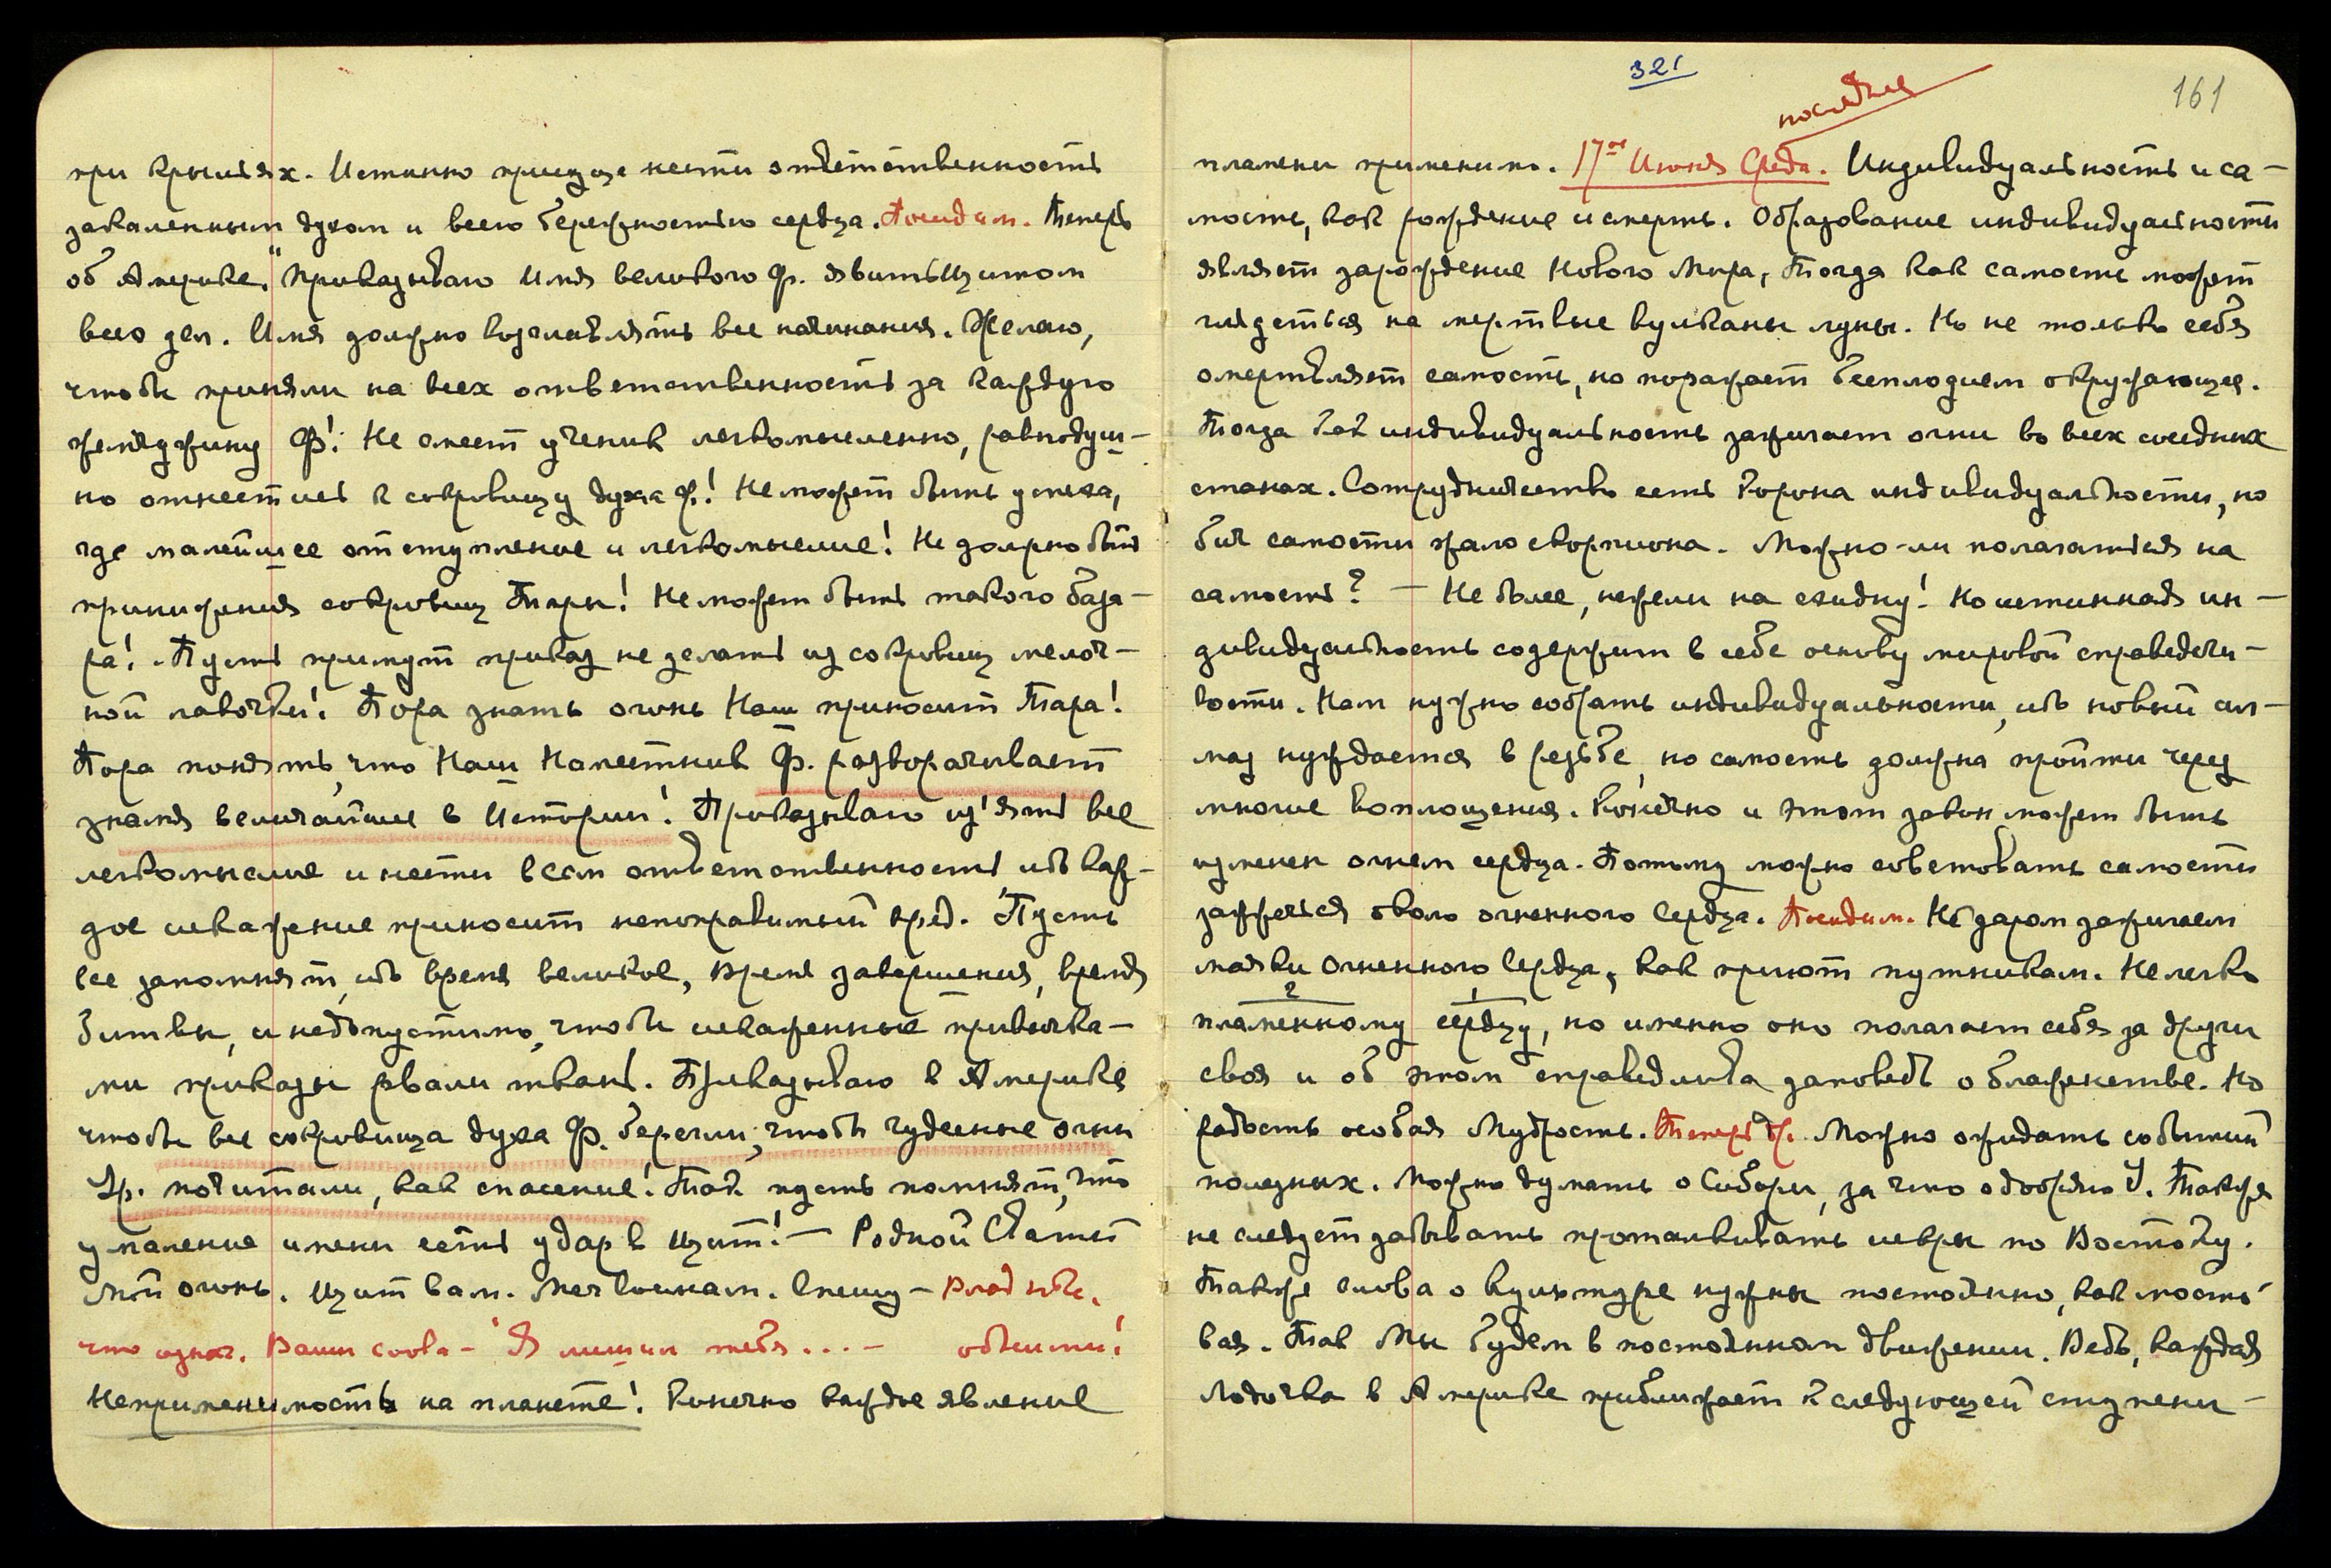 при крыльях. Истинно пришуще нести ответственность
закаленным духом и всею бережностью сердца. Посидим. Теперь
об Америке. "Приказываю Имя великого Ф. явить щитом
всех дел. Имя должно возглавлять все начинания. Желаю,
чтобы приняли на всех ответственность за каждую
жемчужину Ф! Не смеет ученик легкомысленно, равнодуш-
но отнестись к сокровищу духа Ф.! Не может быть успеха,
где малейшее отступление и легкомыслие! Не должно быть
принижения сокровищ Тары! Не может быть такого база-
ра! Пусть примут приказ не делать из сокровищ мелоч-
ной лавочки! Пора знать огонь Наш приносит Тара!
Пора понять, что Наш Наместник Ф. разворачивает
знамя величайшее в Истории! Приказываю из'ять все
легкомыслие и нести всем ответственность, ибо каж-
дое искажение приносит непоправимый вред. Пусть
все запомнят, ибо время великое, время завершения, время
Битвы, и недопустимо, чтобы искаженные привычка-
ми приказы рвали ткань. Приказываю в Америке
чтобы все сокровища духа Ф. берегли, чтобы чудесные огни
Ур. почитали, как спасение! Так пусть помнят, что
умаление имени есть удар в щит! — Родной Свати
Мой огонь. Щит вам. Меч воинам. Спешу — Влад.
что означ. Ваши слова - "Я лишил тебя... —
Неприменимость на планете! Конечно каждое явление
321
161
последнее
пламени применимо. 17ое Июня Среда. Индивидуальность и са-
мость, как рождение и смерть. Образование индивидуальности
являет зарождение Нового Мира, тогда как самость может
глядеться на мертвые вулканы луны. Но не только себя
омертвляет самость, но поражает бесплодием окружающее.
Тогда как индивидуальность зажигает огни во всех соседних
станах. Сотрудничество есть корона индивидуальности, но
бич самости жало скорпиона. Можно-ли полагаться на
самость? — Не более, нежели на ехидну! Но истинная ин-
дивидуальность содержит в себе основу мировой справедли-
вости. Нам нужно собрать индивидуальности, ибо новый ал-
маз нуждается в резьбе, но самость должна пройти через
многие воплощения. Конечно и этот закон может быть
изменен огнем сердца. Потому можно советовать самости
зажечься около огненного Сердца. Посидим. Не даром зажигаем
маяки Огненного Сердца, как приют путникам. Не легко
2 1
пламенному сердцу, но именно оно полагает себя за други
своя и об этом справедлива заповедь о блаженстве. Но
радость особая Мудрость. Теперь др. Можно ожидать событий
полезных. Можно думать о Сибири, за что одобряю У. Также
не следует забывать проталкивать искры по Востоку.
Также слова о культуре нужны постоянно, как мосто-
вая. Так Мы будем в постоянном движении. Ведь, каждая
Лодочка в Америке приближает к следующей ступени —